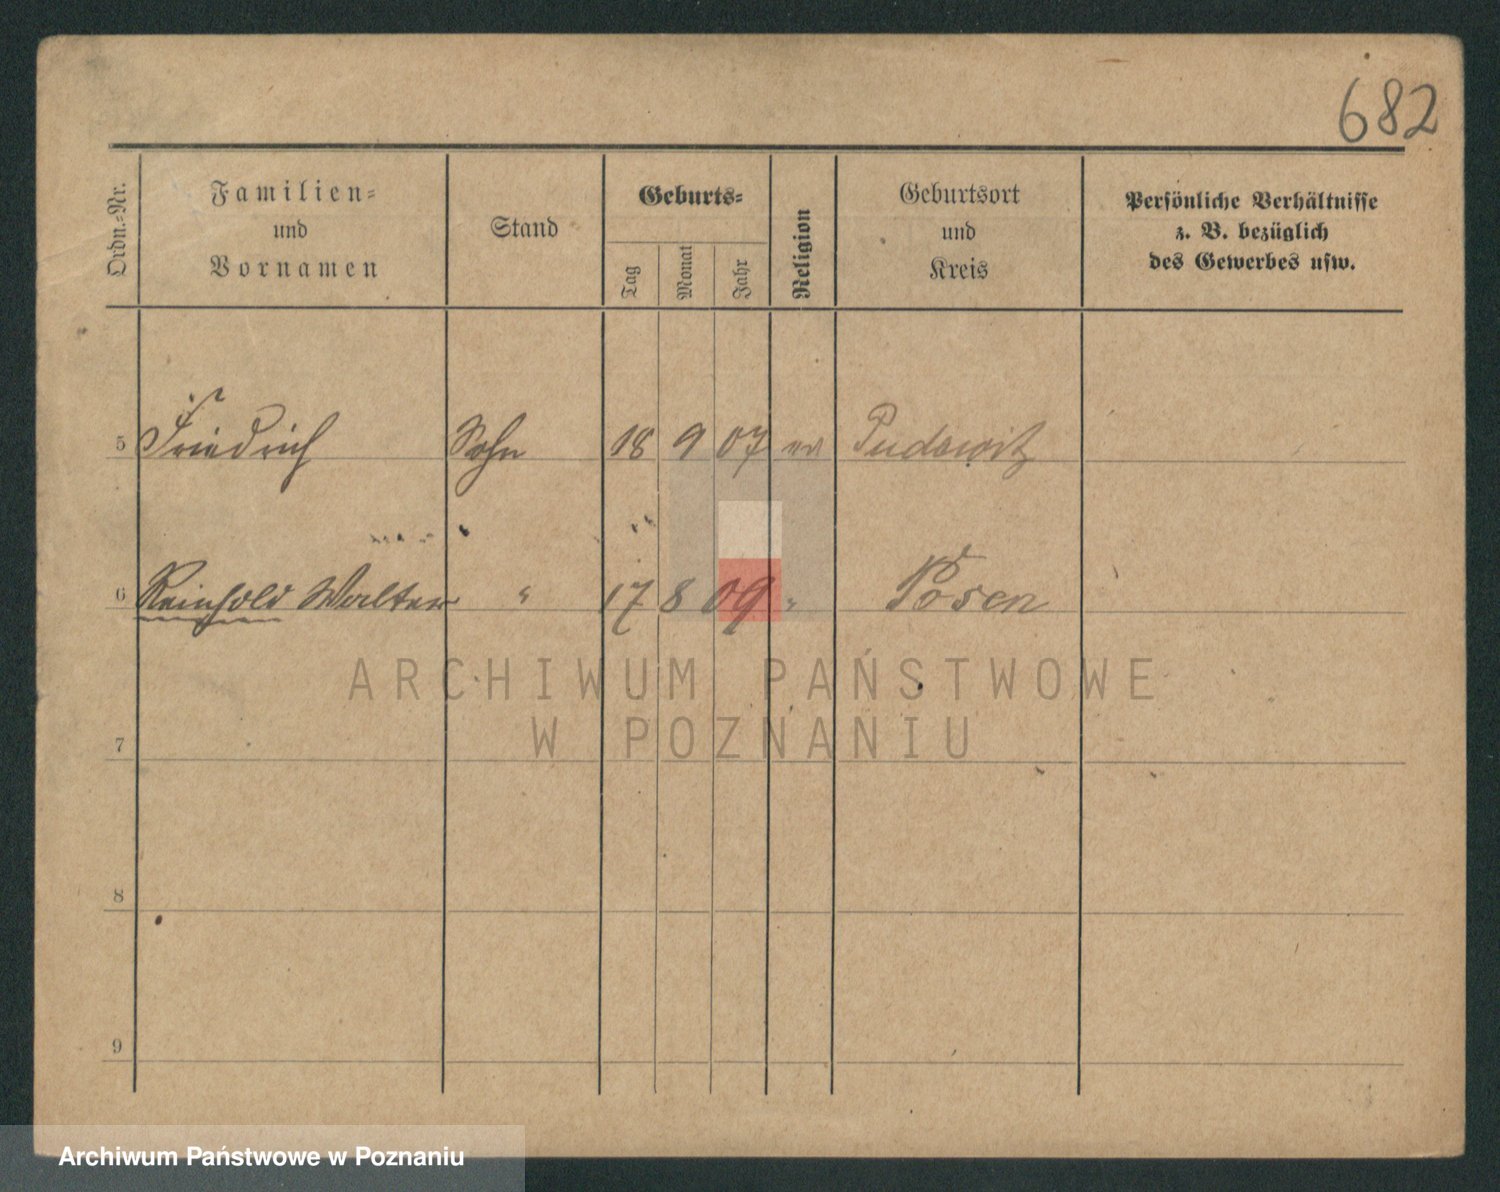 682
Ordn.-Nr.
Familien-
und
Vornamen
Stand
Geburts-
Tag
Monat
Jahr
Religion
Geburtsort
und
Kreis
Persönliche Verhältnisse
z. B. bezüglich
des Gewerbes usw.
5 Friedrich Sohn 18 9 07 ev Pudewitz
6 Reinhold Walter " 17 8 09 " Posen
ARCHIWUM PAŃSTWOWE
W POZNANIU
7
8
9
Archiwum Państwowe w Poznaniu